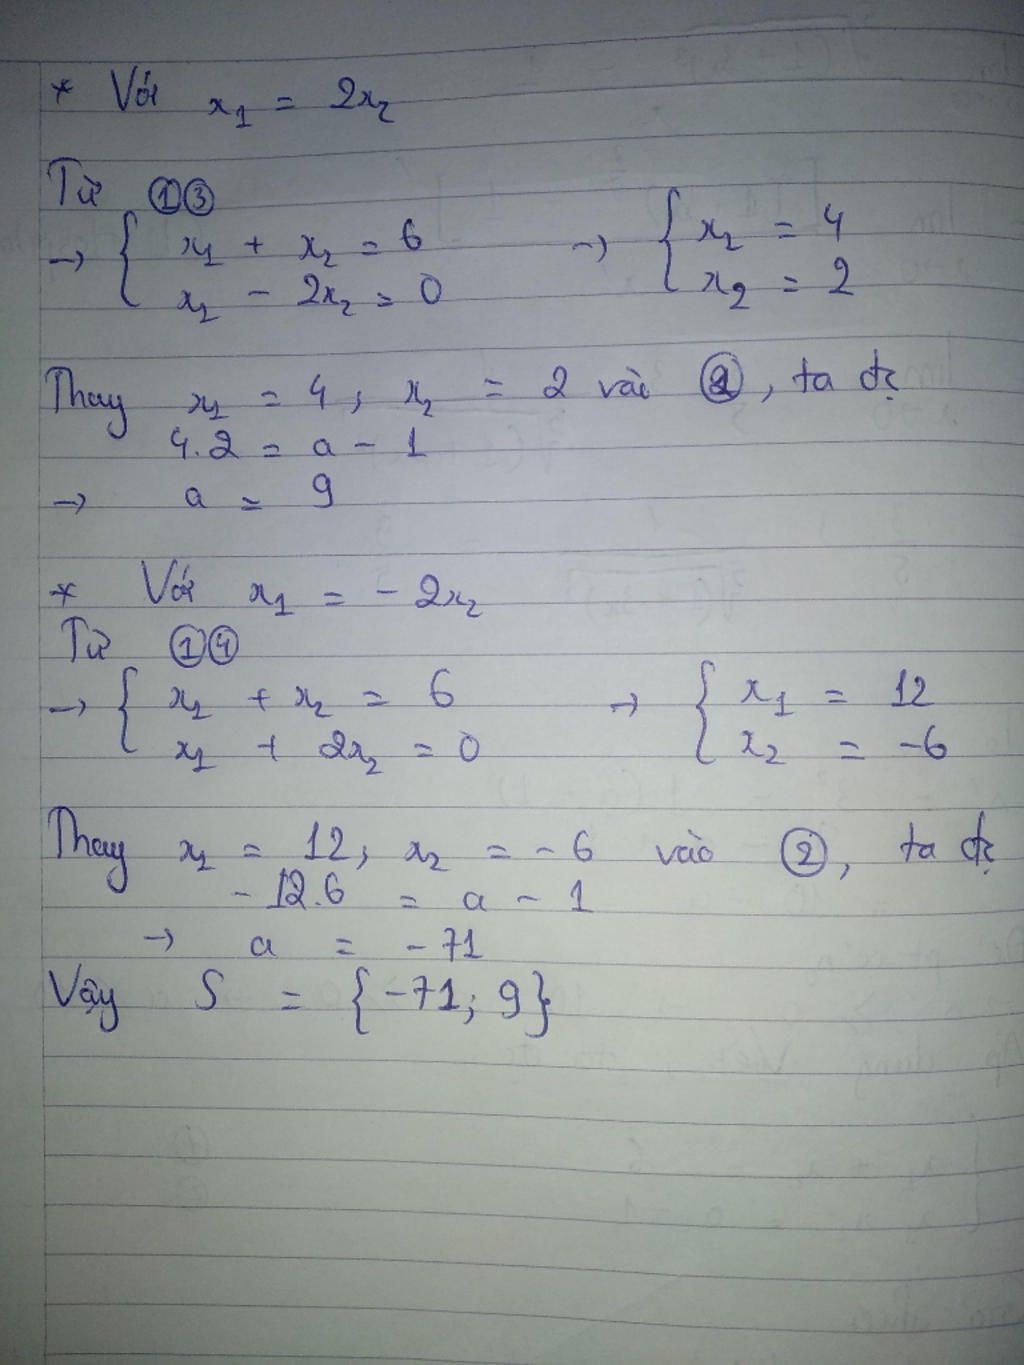 * Với x₁ = 2x₂
Từ ①③
→ { x₁ + x₂ = 6 → { x₂ = 4
x₂ - 2x₂ = 0 x₂ = 2
Thay x₁ = 4, x₂ = 2 vào ②, ta đc
4.2 = a - 1
→ a = 9
* Với x₁ = - 2x₂
Từ ①④
→ { x₁ + x₂ = 6 → { x₁ = 12
x₁ + 2x₂ = 0 x₂ = -6
Thay x₁ = 12, x₂ = -6 vào ②, ta đc
- 12.6 = a - 1
→ a = -71
Vậy S = {-71; 9}